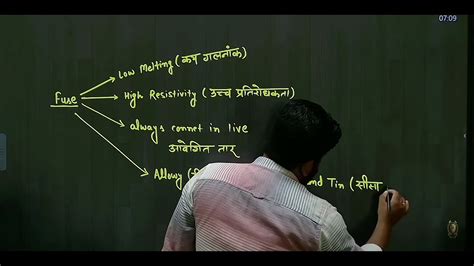 07:09
Low Melting (कम गलनांक)
Fuse
High Resistivity (उच्च प्रतिरोधकता)
always connet in live
आवेशित तार
Allowy (
and Tin (सीसा